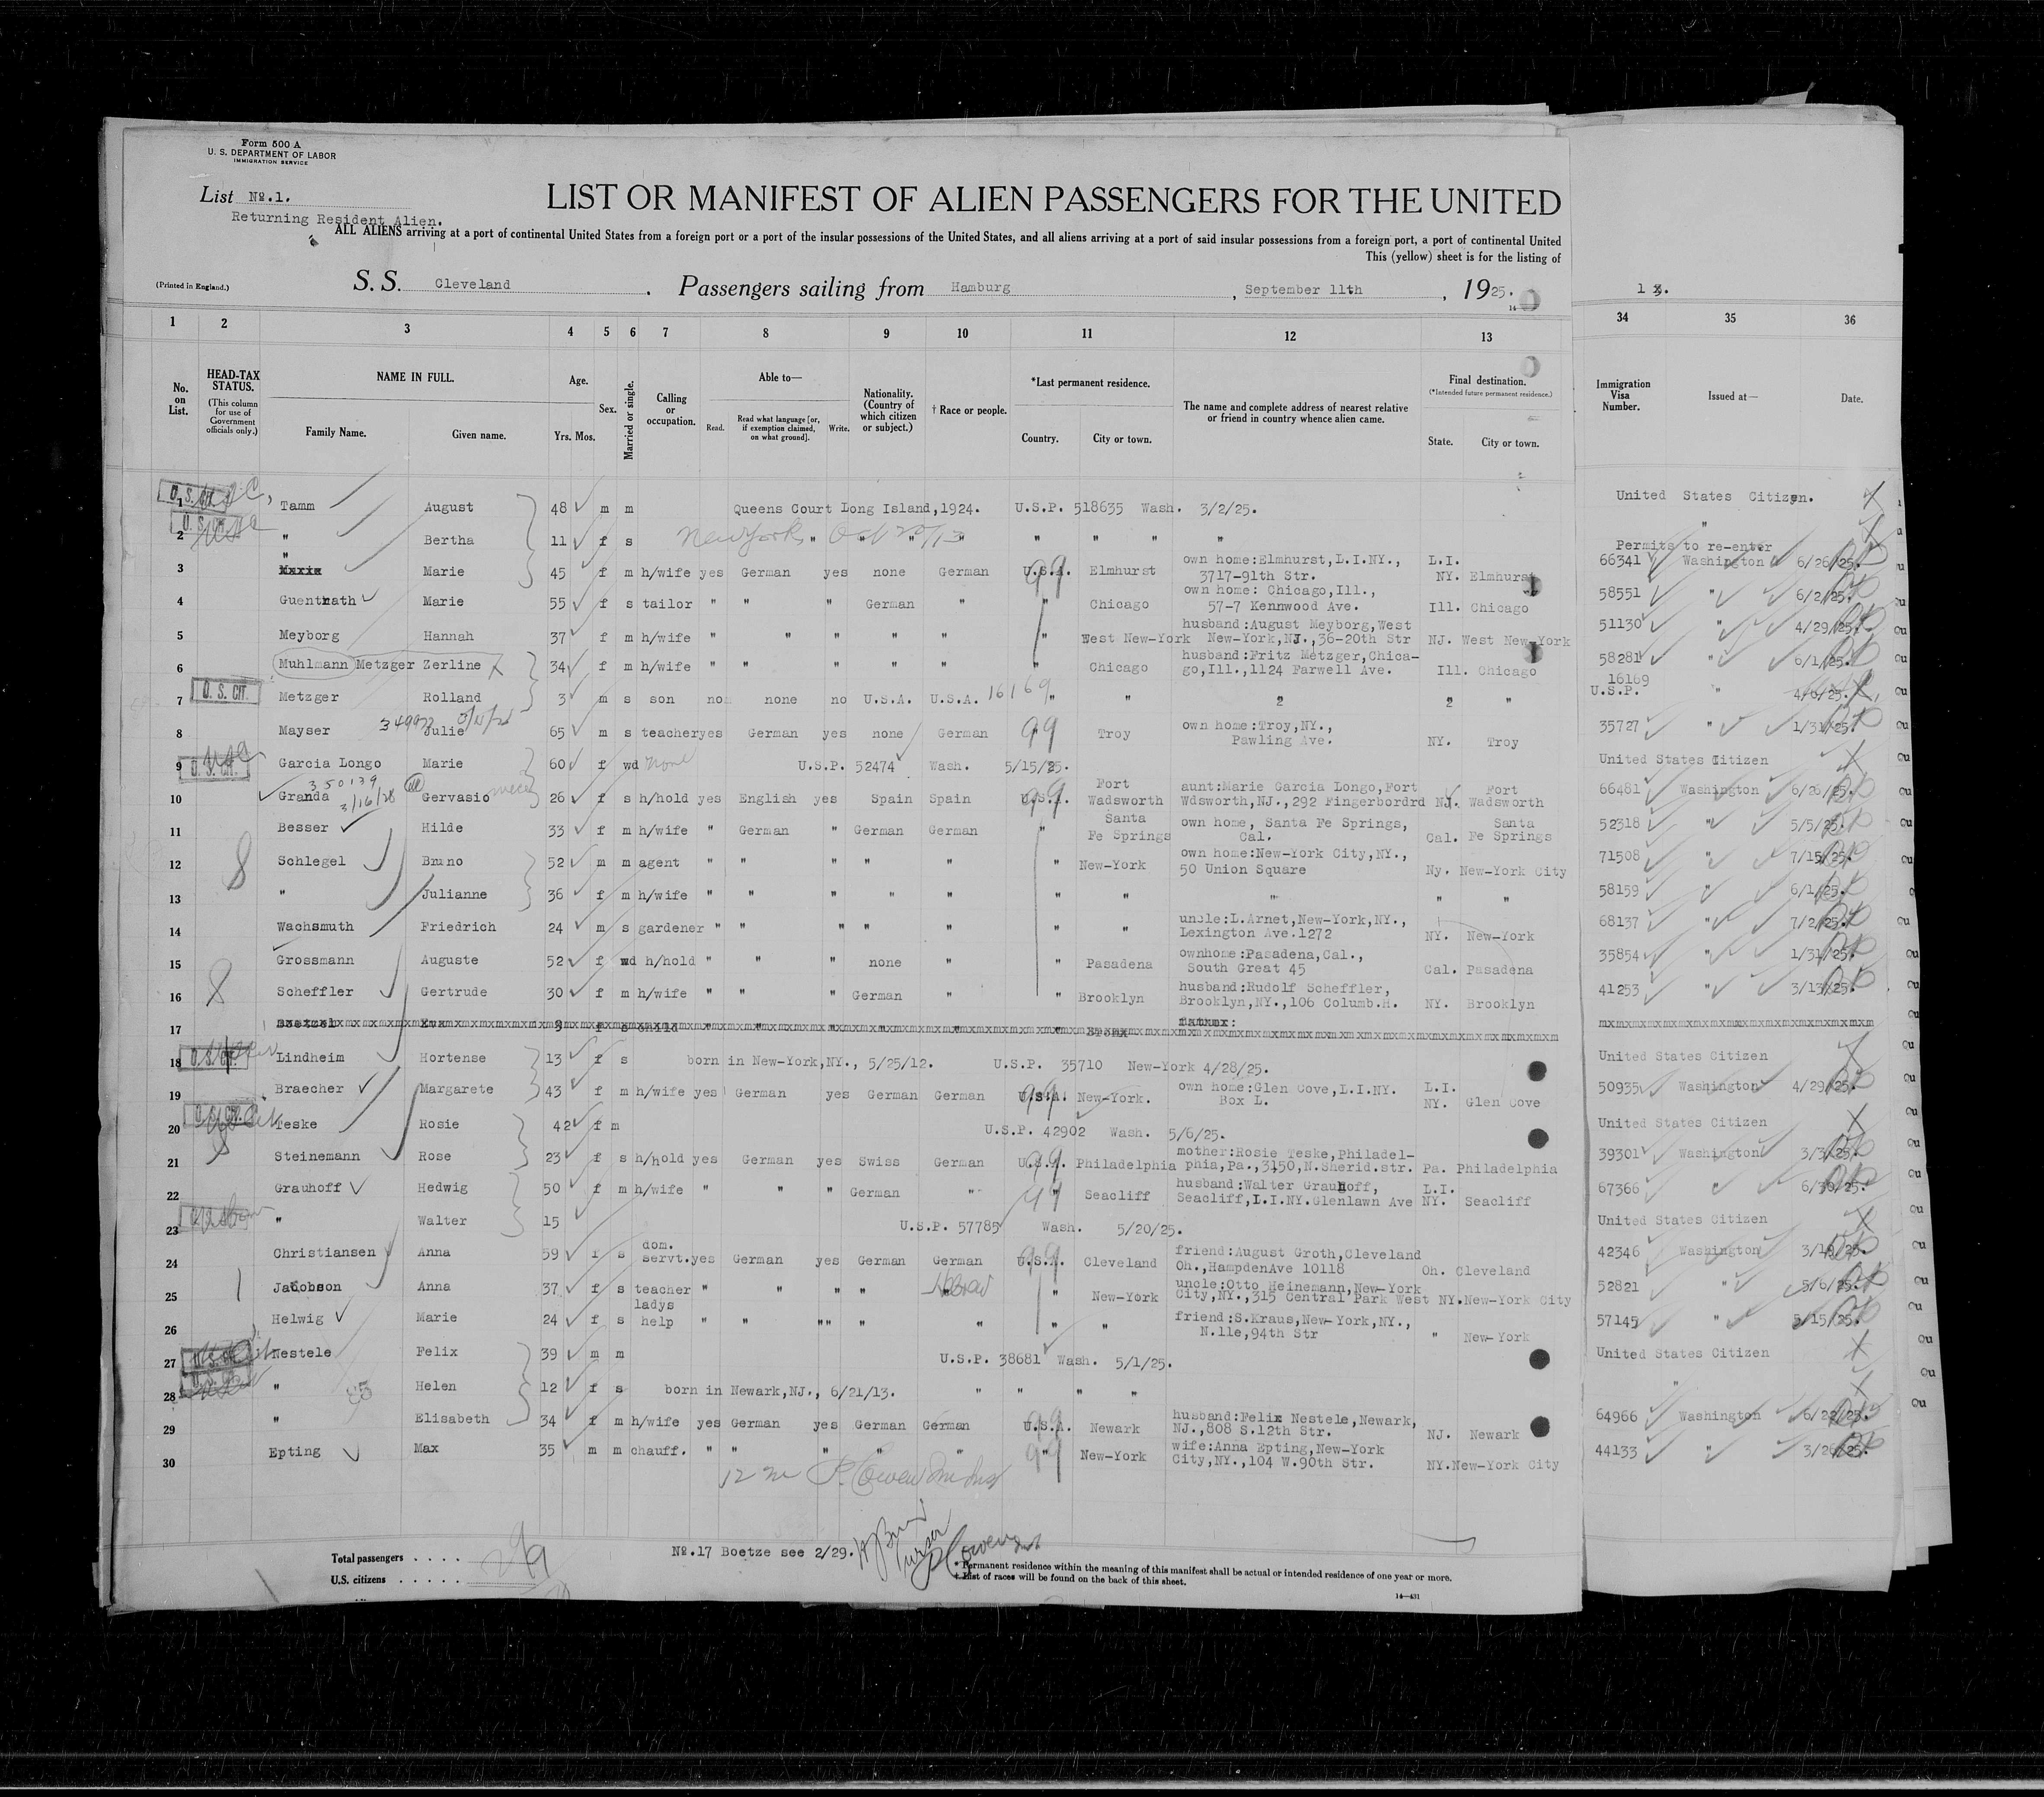 Form 500 A
U. S. DEPARTMENT OF LABOR
IMMIGRATION SERVICE
List No.1.
Returning Resident Alien.
LIST OR MANIFEST OF ALIEN PASSENGERS FOR THE UNITED
ALL ALIENS arriving at a port of continental United States from a foreign port or a port of the insular possessions of the United States, and all aliens arriving at a port of said insular possessions from a foreign port, a port of continental United
This (yellow) sheet is for the listing of
(Printed in England.)
S. S. Cleveland. Passengers sailing from Hamburg, September 11th, 1925.
14—
1 2 3 4 5 6 7 8 9 10 11 12 13 34 35 36
No. on List.
HEAD-TAX STATUS. (This column for use of Government officials only.)
NAME IN FULL.
Family Name. Given name.
Age. Yrs. Mos.
Sex.
Married or single.
Calling or occupation.
Able to—
Read. Read what language [or, if exemption claimed, on what ground]. Write.
Nationality. (Country of which citizen or subject.)
† Race or people.
*Last permanent residence.
Country. City or town.
The name and complete address of nearest relative or friend in country whence alien came.
Final destination.
(*Intended future permanent residence.)
State. City or town.
Immigration Visa Number.
Issued at—
Date.
1 U. S. CIT. Tamm August 48 m m Queens Court Long Island,1924. U.S.P. 518635 Wash. 3/2/25. United States Citizen.
2 U. S. CIT. " Bertha 11 f s New York Oct 20/13 " " " " " " " "
Permits to re-enter
3 " Marie 45 f m h/wife yes German yes none German U.S.A. Elmhurst own home:Elmhurst,L.I.NY., 3717-91th Str. L.I. NY. Elmhurst 66341 Washington 6/26/25.
4 Guenthrath Marie 55 f s tailor " " " German " " Chicago own home: Chicago,Ill., 57-7 Kennwood Ave. Ill. Chicago 58551 " 6/2/25.
5 Meyborg Hannah 37 f m h/wife " " " " " " West New-York husband:August Meyborg,West New-York,NJ.,36-20th Str NJ. West New-York 51130 " 4/29/25.
6 Muhlmann Metzger Zerline 34 f m h/wife " " " " " " Chicago husband:Fritz Metzger,Chica- go,Ill.,1124 Farwell Ave. Ill. Chicago 58281 " 6/1/25.
7 U. S. CIT. Metzger Rolland 3 m s son no none no U.S.A. U.S.A. 16169 " " 2 2 " 16169 U.S.P. " 4/6/25.
8 Mayser Julie 65 m s teacher yes German yes none German " Troy own home:Troy,NY., Pawling Ave. NY. Troy 35727 " 1/31/25.
9 U. S. CIT. Garcia Longo Marie 60 f wd none U.S.P. 52474 Wash. 5/15/25. United States Citizen
350139 3/16/28 niece
10 Granda Gervasio 26 f s h/hold yes English yes Spain Spain U.S.A. Fort Wadsworth aunt:Marie Garcia Longo,Fort Wdsworth,NJ.,292 Fingerbordrd NJ. Fort Wadsworth 66481 Washington 6/26/25.
11 Besser Hilde 33 f m h/wife " German " German German " Santa Fe Springs own home, Santa Fe Springs, Cal. Cal. Santa Fe Springs 52318 " 5/5/25.
12 Schlegel Bruno 52 m m agent " " " " " " New-York own home:New-York City,NY., 50 Union Square Ny. New-York City 71508 " 7/15/25.
13 " Julianne 36 f m h/wife " " " " " " " " " " 58159 " 6/1/25.
14 Wachsmuth Friedrich 24 m s gardener " " " " " " " uncle:L.Arnet,New-York,NY., Lexington Ave.1272 NY. New-York 68137 " 7/2/25.
15 Grossmann Auguste 52 f wd h/hold " " " none " " Pasadena ownhome:Pasadena,Cal., South Great 45 Cal. Pasadena 35854 " 1/31/25.
16 Scheffler Gertrude 30 f m h/wife " " " German " " Brooklyn husband:Rudolf Scheffler, Brooklyn,NY.,106 Columb.H. NY. Brooklyn 41253 " 3/13/25.
17 child Bronx
18 U. S. CIT. Lindheim Hortense 13 f s born in New-York,NY., 5/25/12. U.S.P. 35710 New-York 4/28/25. United States Citizen
19 Braecher Margarete 43 f m h/wife yes German yes German German U.S.A. New-York. own home:Glen Cove,L.I.NY. Box L. L.I. NY. Glen Cove 50935 Washington 4/29/25.
20 U. S. CIT. Teske Rosie 42 f m U.S.P. 42902 Wash. 5/6/25. United States Citizen
21 Steinemann Rose 23 f s h/hold yes German yes Swiss German U.S.A. Philadelphia mother:Rosie Teske,Philadel- phia,Pa.,3150,N.Sherid.str. Pa. Philadelphia 39301 Washington 3/3/25.
22 Grauhoff Hedwig 50 f m h/wife " " " German " Seacliff husband:Walter Grauhoff, Seacliff,L.I.NY.Glenlawn Ave L.I. NY. Seacliff 67366 " 6/30/25.
23 " Walter 15 U.S.P. 57785 Wash. 5/20/25. United States Citizen
24 Christiansen Anna 59 f s dom. servt. yes German yes German German U.S.A. Cleveland friend:August Groth,Cleveland Oh.,HampdenAve 10118 Oh. Cleveland 42346 Washington 3/18/25.
25 Jacobson Anna 37 f s teacher " " " " Hebrew " New-York uncle:Otto Heinemann,New-York City,NY.,315 Central Park West NY. New-York City 52821 " 5/6/25.
26 Helwig Marie 24 f s ladys help " " "" " " " " friend:S.Kraus,New-York,NY., N.11e,94th Str " New-York 57145 " 5/15/25.
27 U. S. CIT. Nestele Felix 39 m m U.S.P. 38681 Wash. 5/1/25. United States Citizen
28 U. S. CIT. " Helen 12 f s born in Newark,NJ., 6/21/13. " " " " "
29 " Elisabeth 34 f m h/wife yes German yes German German U.S.A. Newark husband:Felix Nestele,Newark, NJ.,808 S.12th Str. NJ. Newark 64966 Washington 6/22/25.
30 Epting Max 35 m m chauff. " " " " " " New-York wife:Anna Epting,New-York City,NY.,104 W.90th Str. NY. New-York City 44133 " 3/26/25.
No.17 Boetze see 2/29.
Total passengers . . . .
U.S. citizens . . . . .
* Permanent residence within the meaning of this manifest shall be actual or intended residence of one year or more.
† List of races will be found on the back of this sheet.
14—431